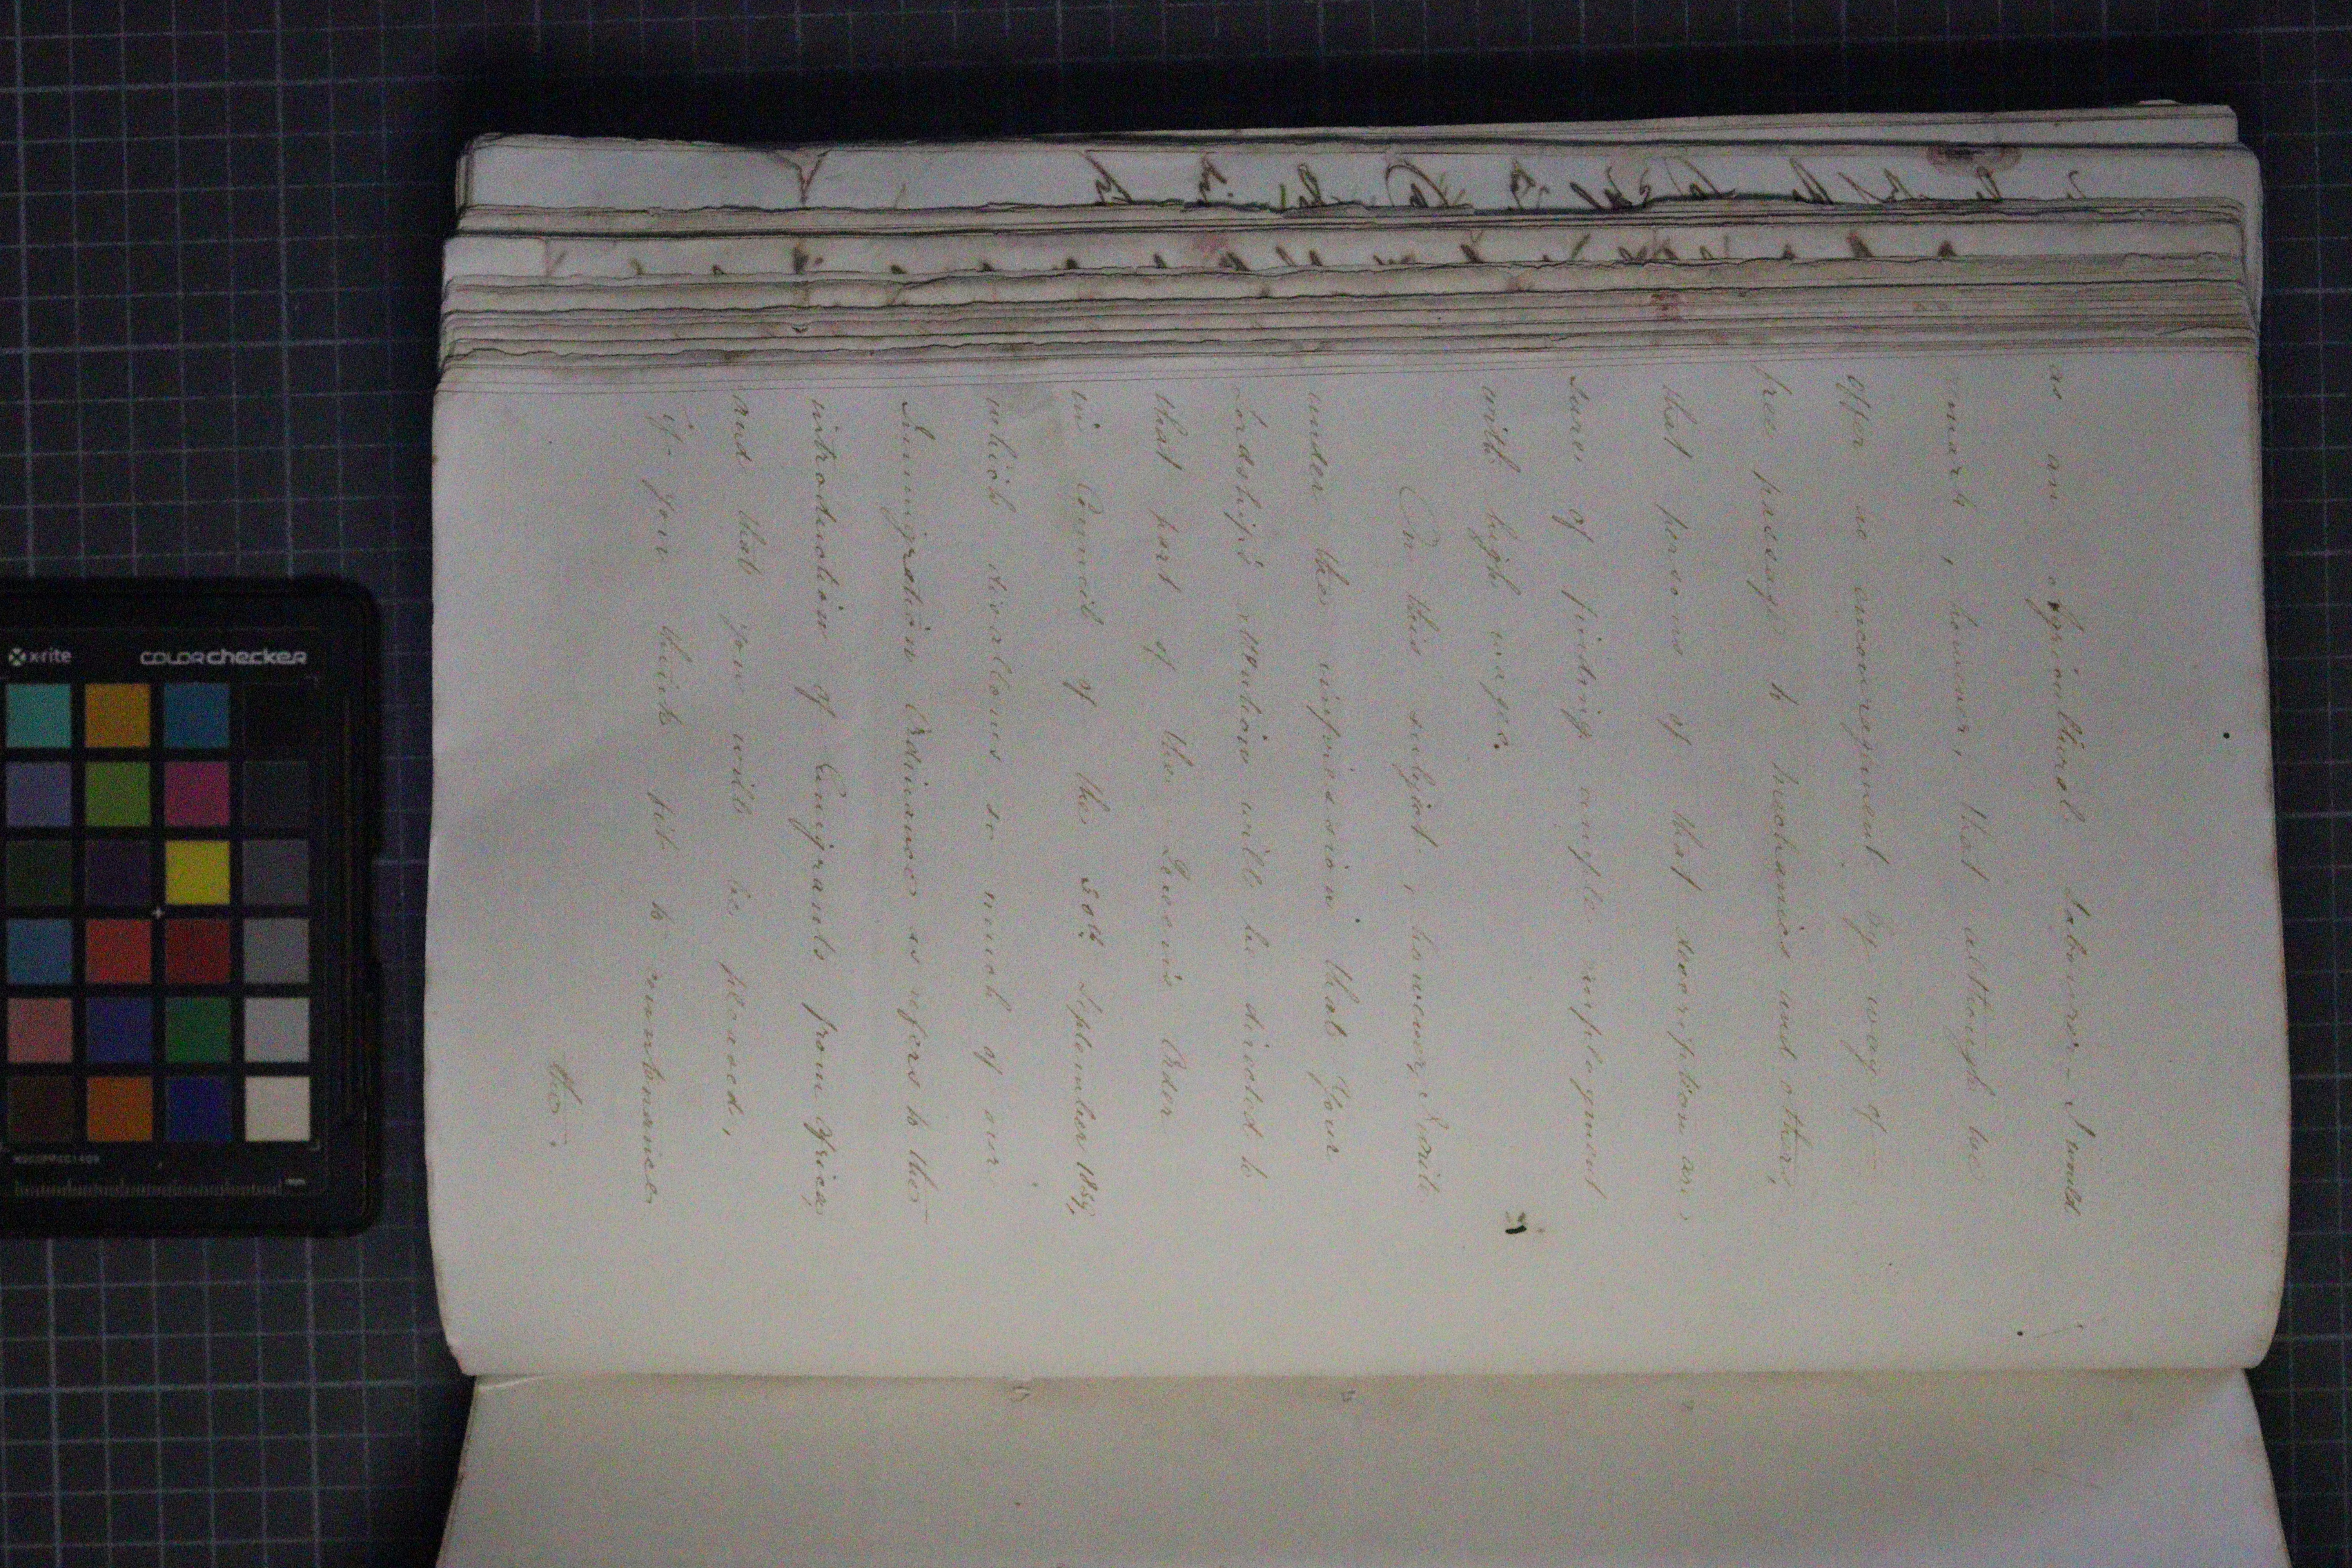 as an Agricultural Labourer. I would
remark, however, that although we
offer no encouragement by way of
free passage to mechanics and others,
that persons of that description are
sure of finding ample employment
with high wages.
On this subject, however, I write
under the impression that Your
Lordship's attention will be directed to
that part of the Queen's Order
in Council of the 30th September 1854,
which disallows so much of our
Immigration Ordinance as refers to the
introduction of Emigrants from Africa,
and that you will be pleased,
if you think fit to countenance
the
x-rite
colorchecker